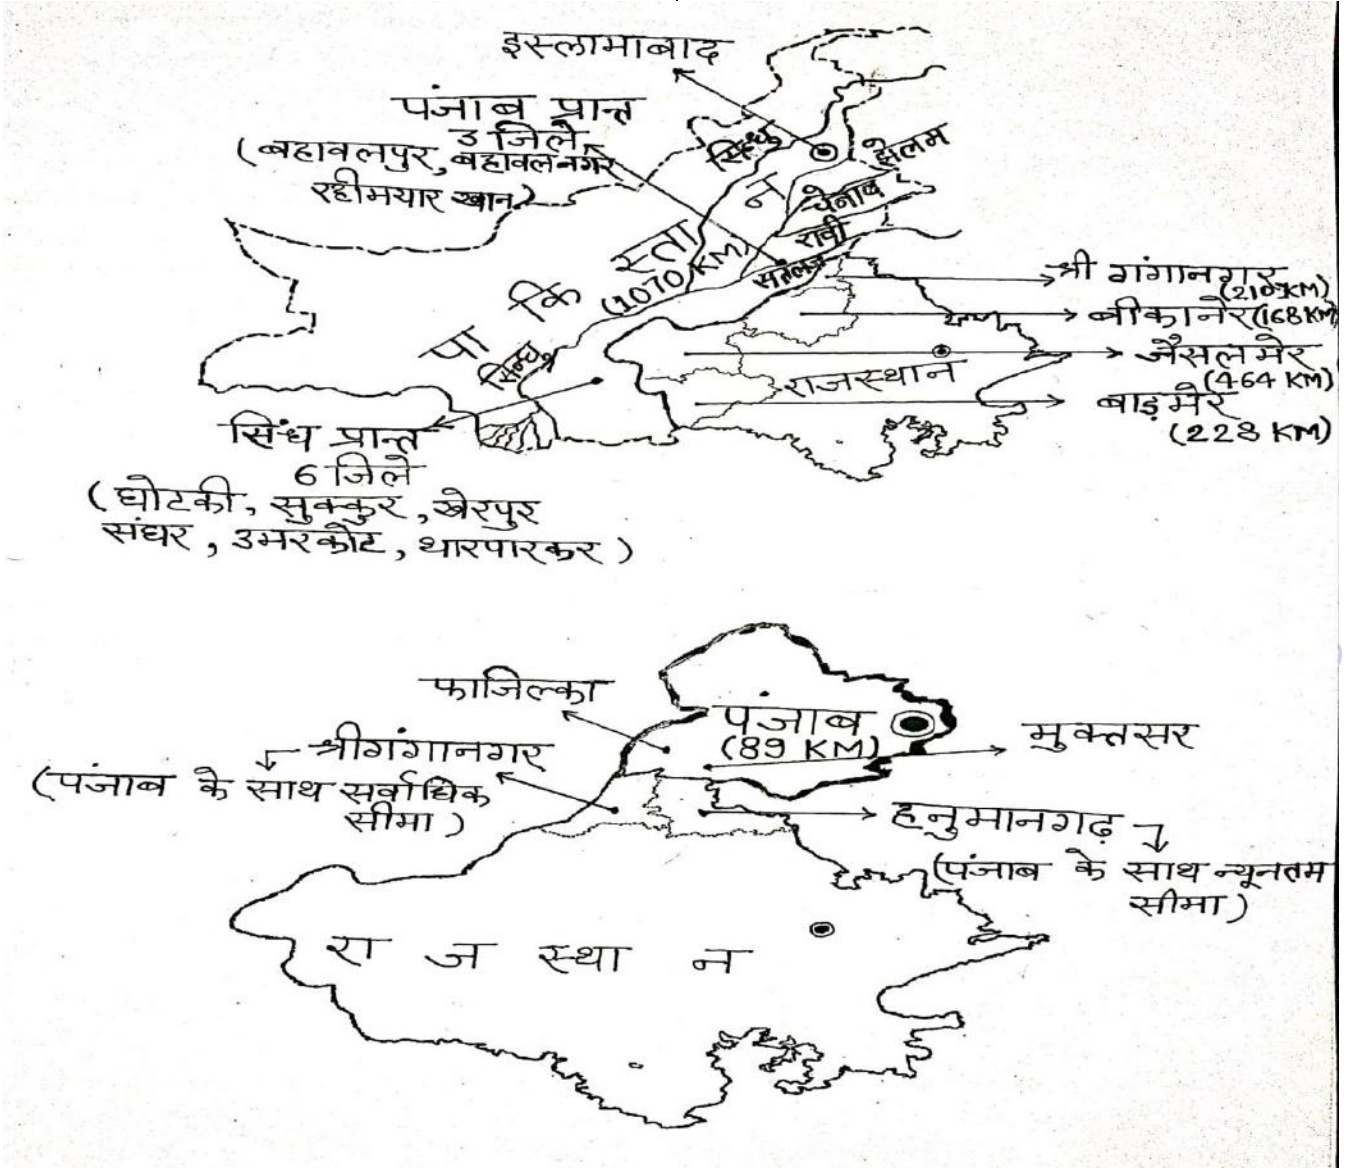 इस्लामाबाद
पंजाब प्रान्त
3 जिले
(बहावलपुर, बहावलनगर
रहीमयार खान)
सिन्धु
झेलम
चेनाब
रावी
सतलज
पा कि स्ता न
(1070 KM)
सिन्धु
श्री गंगानगर
(210 KM)
बीकानेर (168 KM)
जैसलमेर
(464 KM)
राजस्थान
बाड़मेर
(228 KM)
सिंध प्रान्त
6 जिले
(घोटकी, सुक्कुर, खैरपुर
संघर, उमरकोट, थारपारकर)
फाजिल्का
पंजाब
(89 KM)
मुक्तसर
श्रीगंगानगर
(पंजाब के साथ सर्वाधिक
सीमा)
हनुमानगढ़
(पंजाब के साथ न्यूनतम
सीमा)
रा ज स्था न